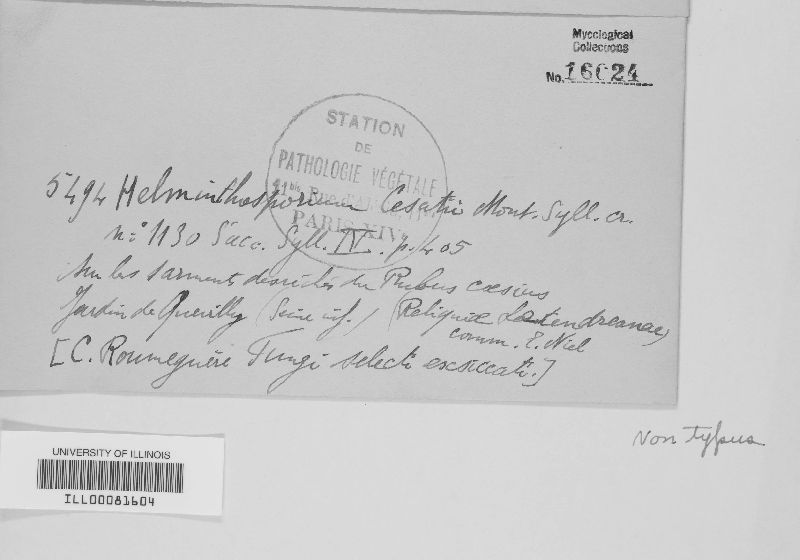 Mycological
Collections
No. 16024
STATION
DE
PATHOLOGIE VÉGÉTALE
11 bis Rue d'Al
PARIS XIV
5494 Helminthosporium Cesatii Mont. Syll. cr.
n:° 1130 Sacc. Syll. IV. p. 405
Sur les sarments desséchés du Rubus cæsius
Jardin de Quevilly (Seine inf.) (Reliquiæ Letendreanae)
comm. E. Niel
[C. Roumeguère Fungi selecti exsiccati.]
Non typus
UNIVERSITY OF ILLINOIS
ILL00081604